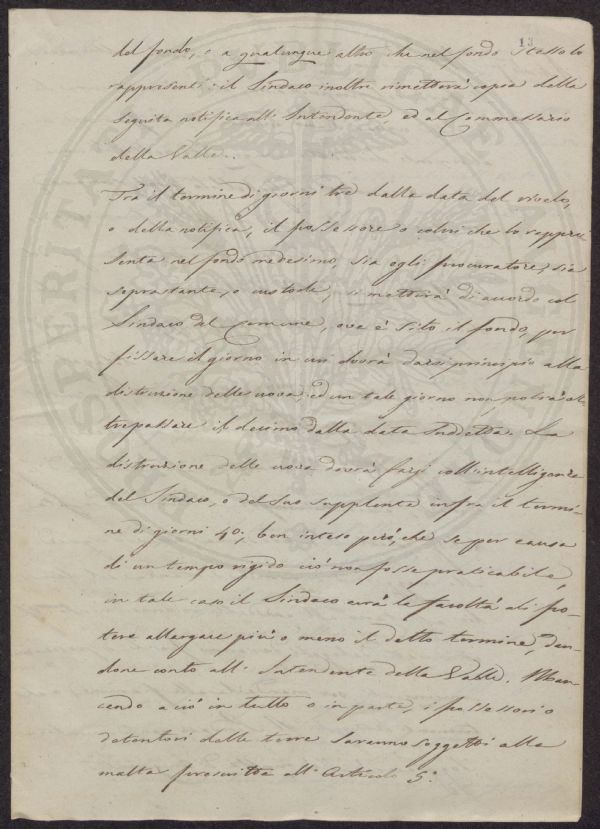 13
del fondo, o a qualunque altro che nel fondo stesso lo
rappresenti: il Sindaco inoltre rimetterà copia della
seguita notifica all'Intendente, ed al Commessario
della Valle.
Tra il termine di giorni tre dalla data del rivelo,
o della notifica, il possessore o colui che lo rappre=
senta nel fondo medesimo, sia egli procuratore, sia
soprastante, o custode, si metterà di accordo col
Sindaco del Comune, ove è sito il fondo, per
fissare il giorno in cui dovrà darsi principio alla
distruzione delle uova, ed un tale giorno non potrà ol=
trepassare il decimo dalla data suddetta. La
distruzione delle uova dovrà farsi coll'intelligenza
del Sindaco, o del suo supplente infra il termi=
ne di giorni 40; ben inteso però, che se per causa
di un tempo rigido ciò non fosse praticabile,
in tale caso il Sindaco avrà la facoltà di po=
tere allargare più o meno il detto termine, dan=
done conto all'Intendente della Valle. Man=
cando a ciò in tutto o in parte, i possessori o
detentori delle terre saranno soggetti alla
multa prescritta all'Articolo 5.°
PROSPERITÀ